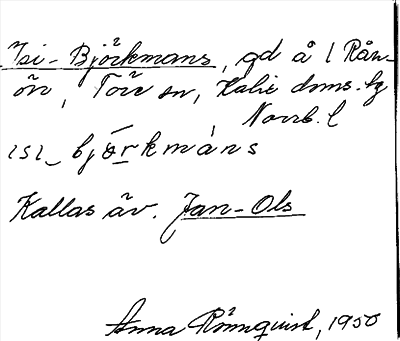 Isi-Björkmans, gd å l Rån-
ön, Töre sn, Kalix doms.hg
Norrb. l
ɪsɪ_ bjo̱ṟkmàns
Kallas äv. Jan-Ols
Anna Rönnquist, 1950